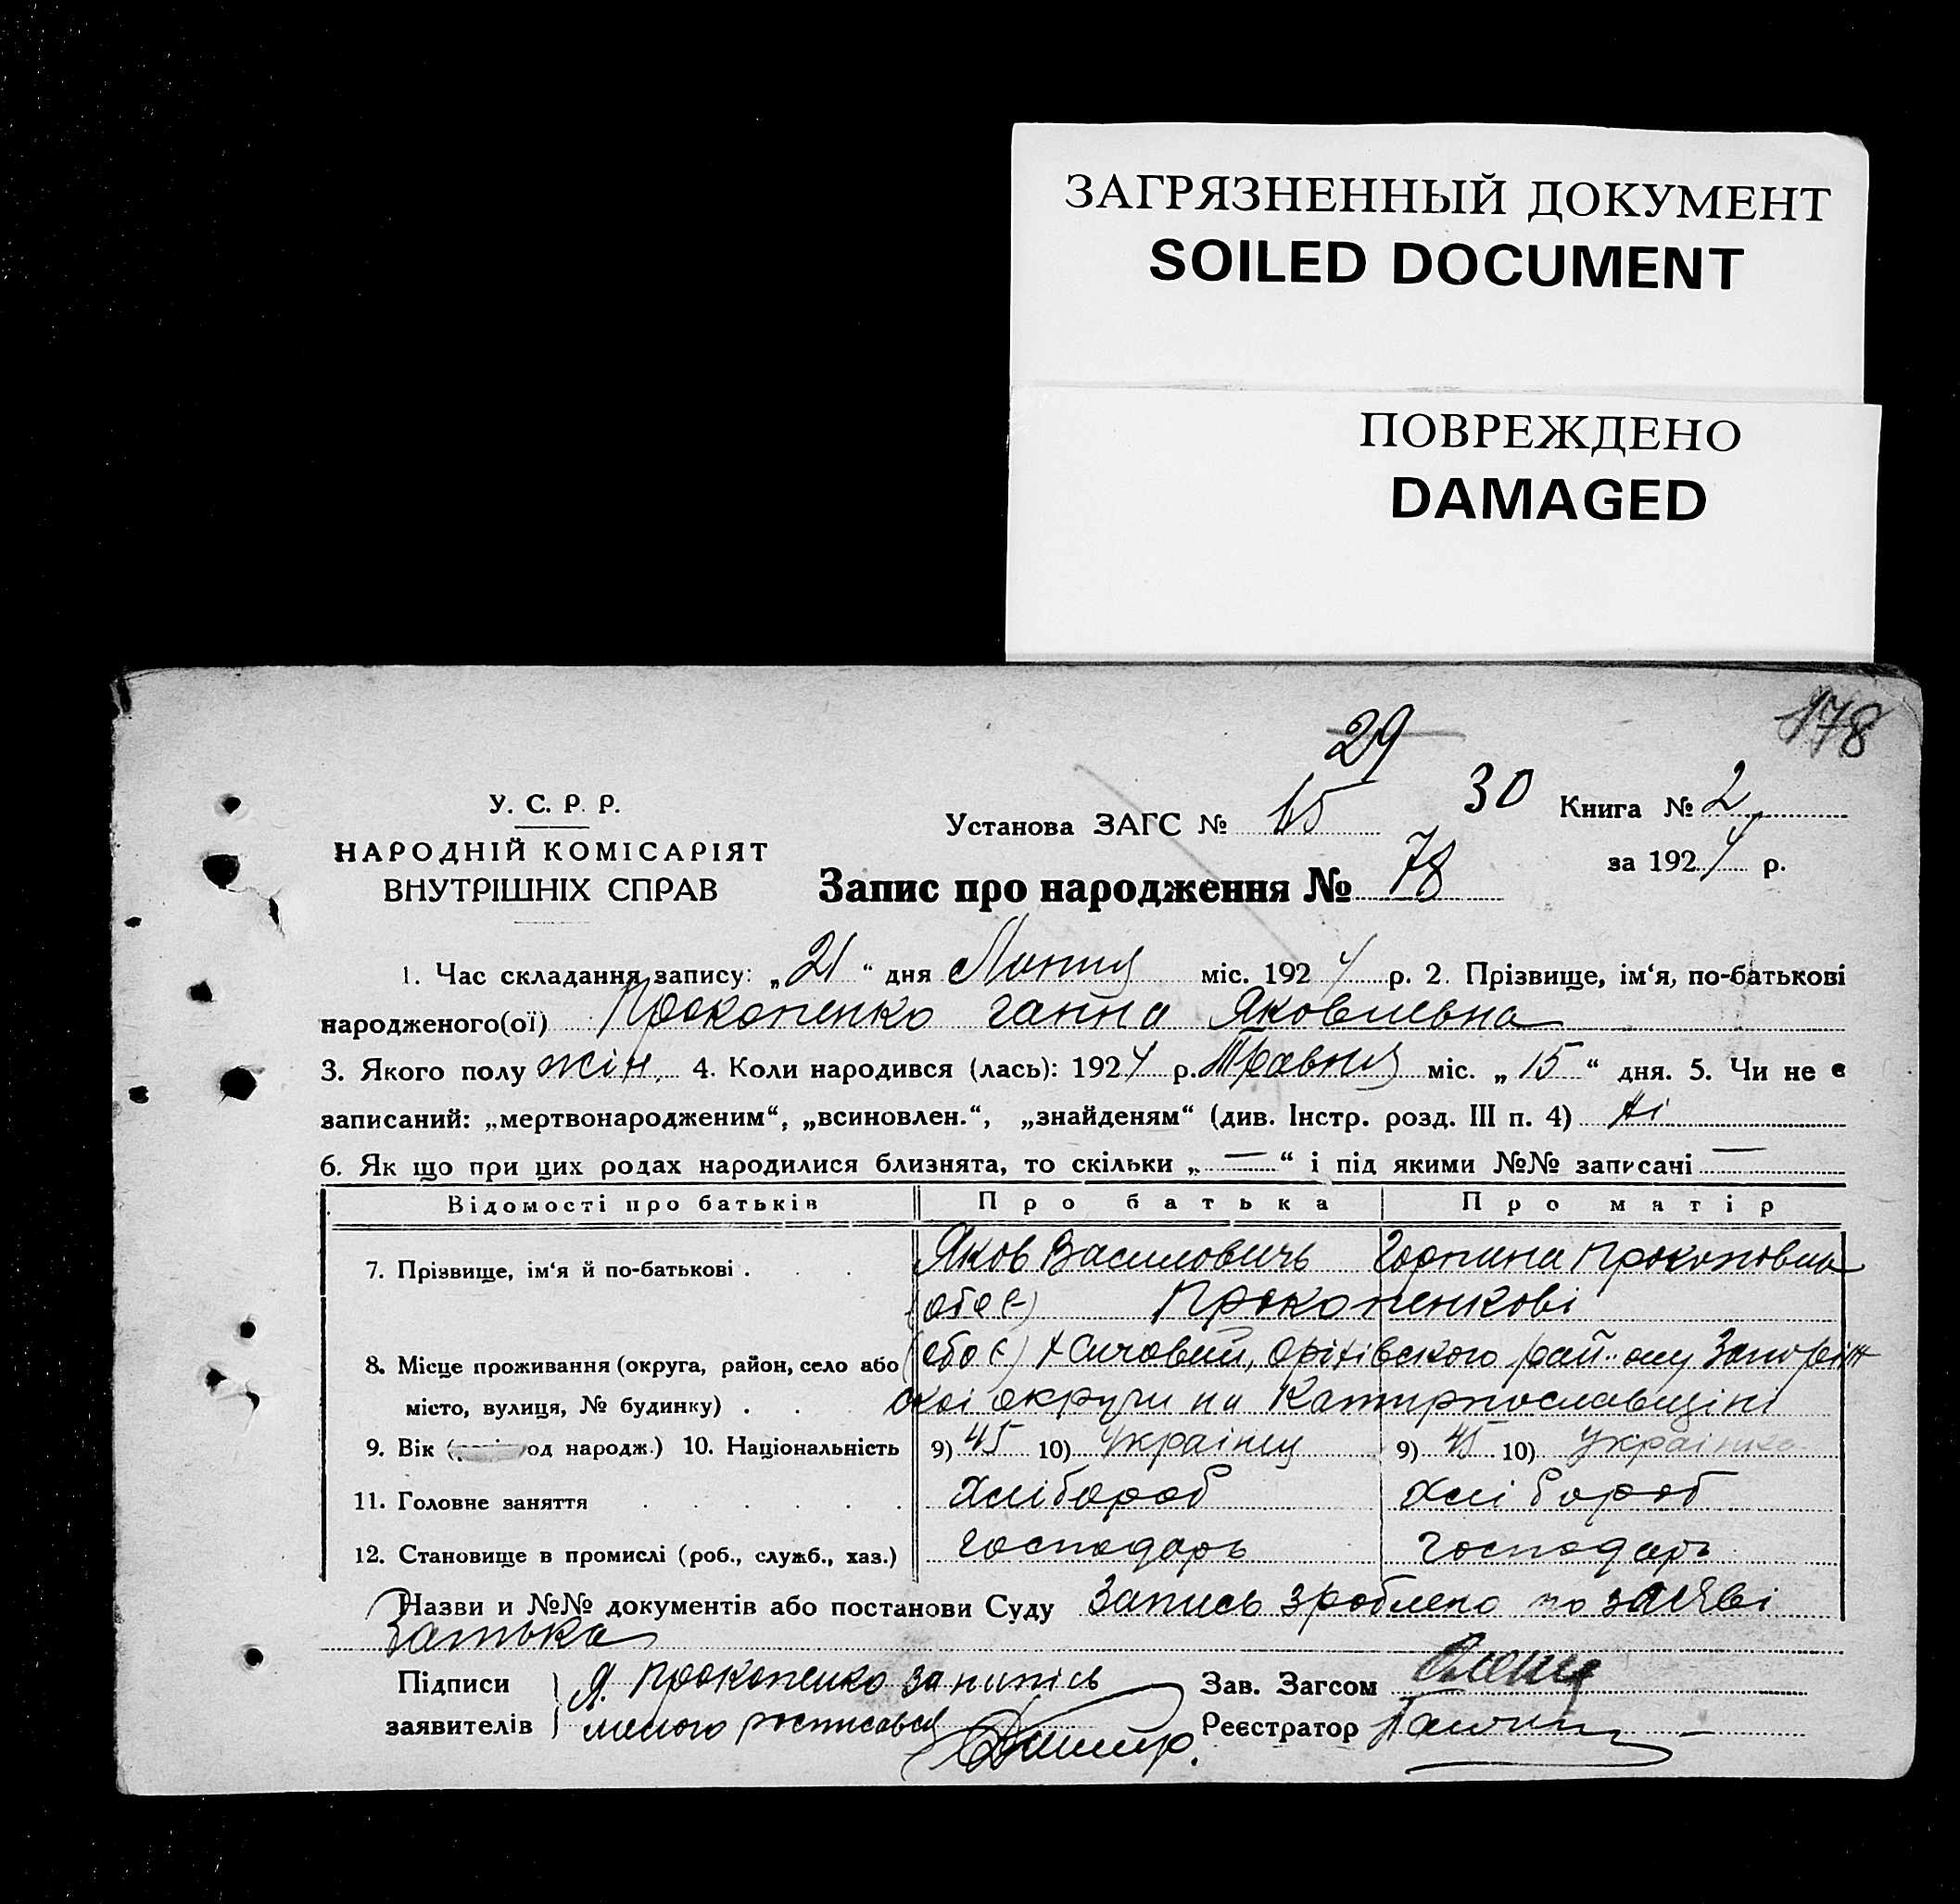 ЗАГРЯЗНЕННЫЙ ДОКУМЕНТ
SOILED DOCUMENT
ПОВРЕЖДЕНО
DAMAGED
178
29
У. С. Р. Р.
НАРОДНІЙ КОМІСАРІЯТ
ВНУТРІШНІХ СПРАВ
Установа ЗАГС № 15 30 Книга № 2
за 1924 р.
Запис про народження № 78
1. Час складання запису: „21“ дня Липня міс. 1924 р. 2. Прізвище, ім‘я, по-батькові
народженого(ої) Прокопенко Ганна Яковлевна
3. Якого полу жін. 4. Коли народився (лась): 1924 р. Травня міс. „15“ дня. 5. Чи не є
записаний: „мертвонародженим“, „всиновлен.“, „знайденям“ (див. Інстр. розд. III п. 4) Ні
6. Як що при цих родах народилися близнята, то скільки „—“ і під якими №№ записані —
Відомості про батьків Про батька Про матір
7. Прізвище, ім‘я й по-батькові . . . Яков Василовичь Горпина Прокоповна
(обоє) Прокопенкові
8. Місце проживання (округа, район, село або (обоє) Х Сичовий, Оріхівского рай-ону Запоріж
місто, вулиця, № будинку) . . . скоі округи на Катирнославщіні
9. Вік ( од народж.) 10. Національність 9) 45 10) Украінец 9) 45 10) Украінка
11. Головне заняття . . . . . . Хлібороб Хлібороб
12. Становище в промислі (роб., служб., хаз.) Господарь Господарь
Назви и №№ документів або постанови Суду Запись зроблено по заяві
Батька
Підписи Я. Прокопенко за Зав. Загсом
заявителів росписався Реєстратор